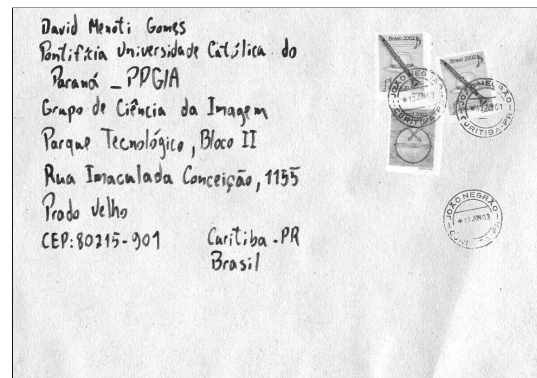 David Menoti Gomes
Pontifícia Universidade Católica do
Paraná - PPGIA
Grupo de Ciência da Imagem
Parque Tecnológico, Bloco II
Rua Imaculada Conceição, 1155
Prado Velho
CEP: 80215-901 Curitiba - PR
Brasil
Brasil 2002
Brasil 2002
JOÃO NEGRÃO
13 JUN 03
CURITIBA-PR
JOÃO NEGRÃO
13 JUN 03
CURITIBA-PR
JOÃO NEGRÃO
13 JUN 03